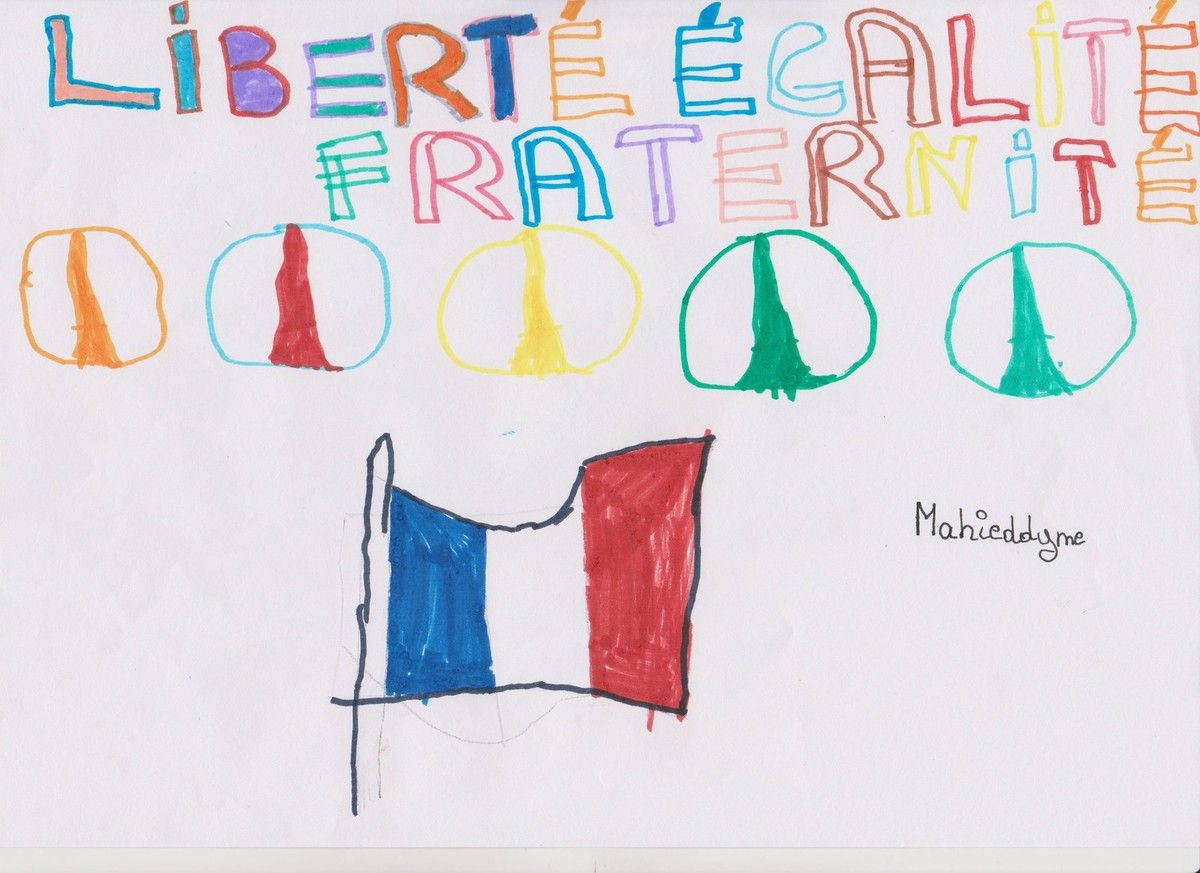 LiBERTÉ ÉGALiTÉ
FRATERNiTÉ
Mahieddyme